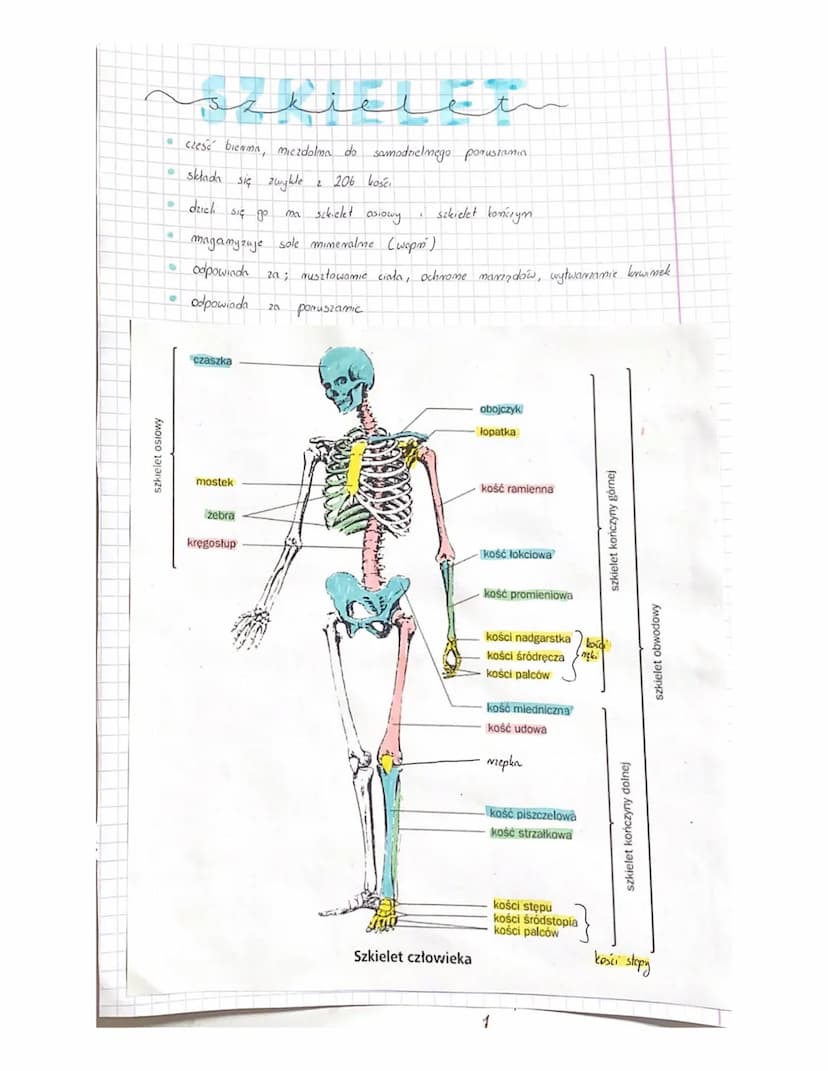 SZKIELET
szkielet
część bierna, niezdolna do samodzielnego poruszania
składa się zwykle z 206 kości
dzieli się go na szkielet osiowy i szkielet kończyn
magazynuje sole mineralne (wapń)
odpowiada za; rusztowanie ciała, ochronę narządów, wytwarzanie krwinek
odpowiada za poruszanie
szkielet osiowy
czaszka
mostek
żebra
kręgosłup
obojczyk
łopatka
kość ramienna
kość łokciowa
kość promieniowa
kości nadgarstka
kości śródręcza
kości palców
kości ręki
szkielet kończyny górnej
szkielet obwodowy
kość miedniczna
kość udowa
rzepka
kość piszczelowa
kość strzałkowa
szkielet kończyny dolnej
kości stępu
kości śródstopia
kości palców
kości stopy
Szkielet człowieka
1